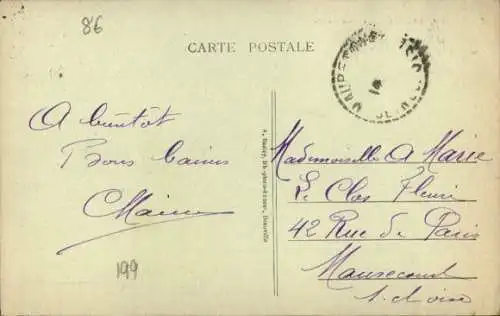 86
CARTE POSTALE
A bientôt
Bons baisers
199
Mademoiselle A Marie
Le Clos Fleuri
42 Rue de Paris
Maurecourt
S. et Oise